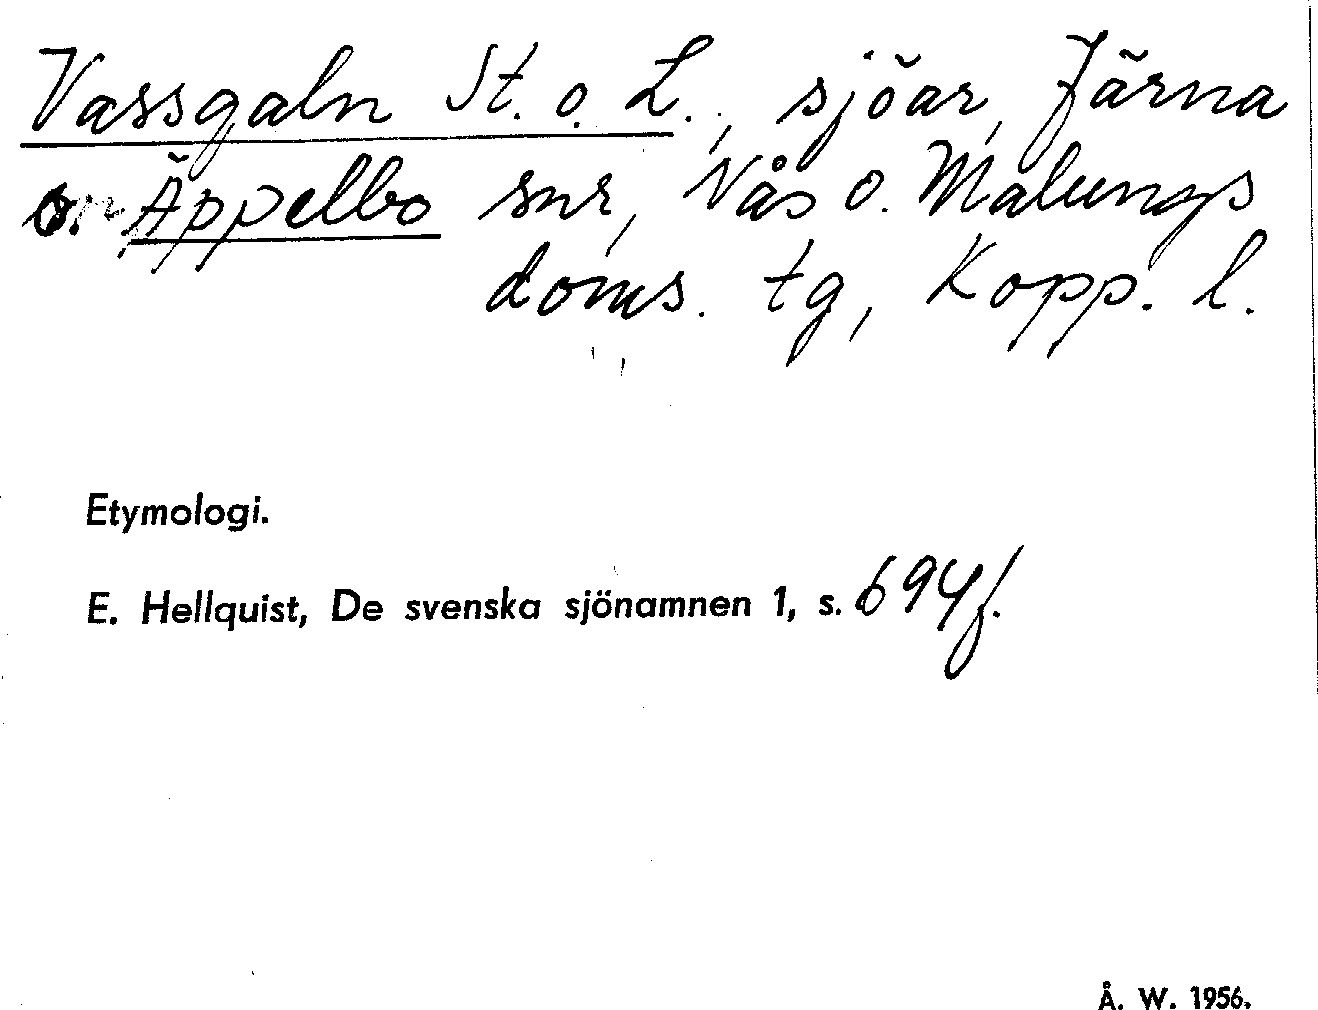 Vassgaln St. o. L., sjöar, Järna
o. Äppelbo snr, Nås o. Malungs
doms. tg, Kopp. l.
Etymologi.
E. Hellquist, De svenska sjönamnen 1, s. 694f.
Å. W. 1956.